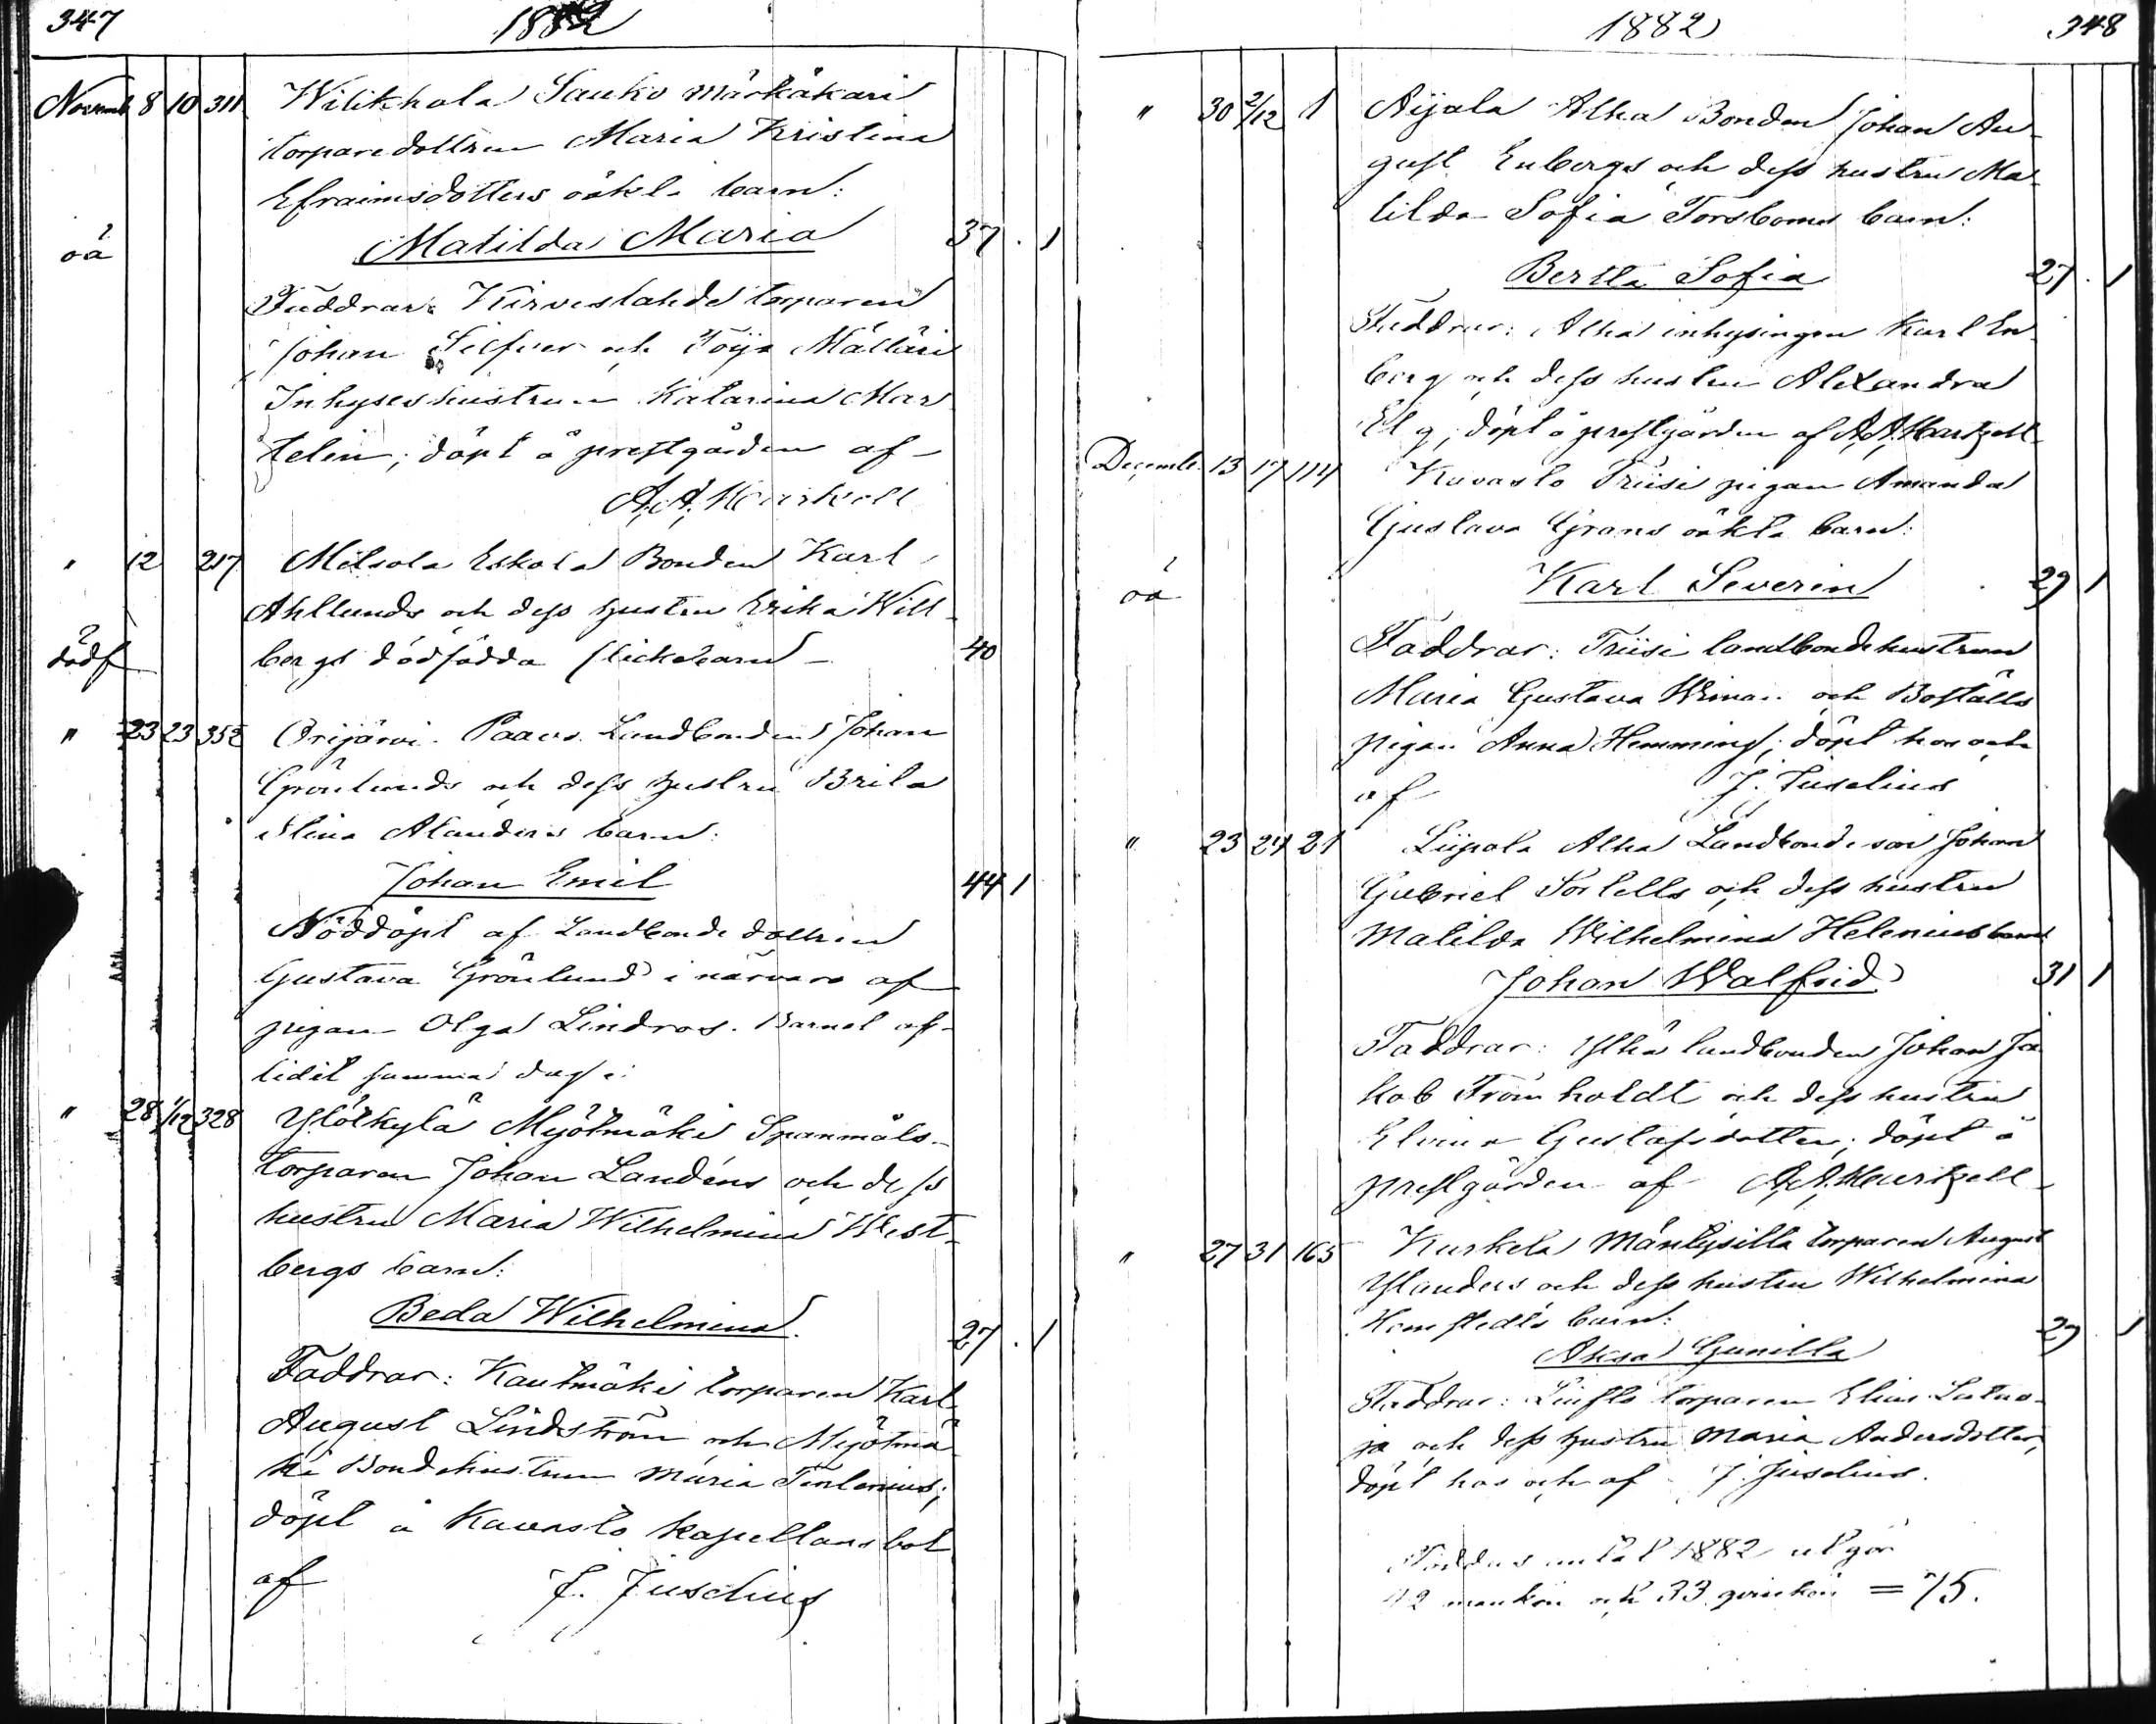 347 1882
Novemb 8 10 311 Wilikkala Sauko märkäkari
torparedottren Maria Kristina
Efraimsdotters oäkta barn:
oä Matilda Maria 37 . 1
Faddrar: Kirveslahde torparen
Johan Silfver och Töijo Mälläri
Inhyseshustrun Katarina Mar
telin; döpt å prestgården af
A. A. Hartzell
" 12 217 Mélsola Eskola Bonden Karl
Ahllunds och dess hustru Erika Will
dödf bergs dödfödda flickebarn – 40
" 23 23 352 Orijärvi Paavo Landbonden Johan
Grönlunds och dess hustru Brita
Stina Alanders barn:
Johan Emil 44 1
Nöddöpt af Landbonde dottren
Gustava Grönlund i närvaro af
pigan Olga Lindros. Barnet af-
lidit samma dag.
" 28 1/12 328 Yløkylä Myötmäki Spanmåls-
torparen Johan Landéns och dess
hustru Maria Wilhelmina West-
bergs barn:
Beda Wilhelmina. 27 . 1
Faddrar: Kautmäki torparen Karl
August Lindström och Myötmä
ki Bondehustrun Maria Tenlenius;
döpt å Kavasto kapellansbol
af J. Juselius
1882 348
" 30 2/12 1 Äijala Alha Bonden Johan Au-
gust Enbergs och dess hustru Ma-
tilda Sofia Torsboms barn:
Bertta Sofia 27 . 1
Faddrar: Alha inhysingen Karl En
berg och dess hustru Alexandra
Elg; döpt å prestgården af A. A. Hartzell
Decemb. 13 17 114 Kavasto Triisi pigan Amanda
Gustava Grans oäkta barn:
oä Karl Severin 29 1
Faddrar: Triisi landbondehustrun
Maria Gustava Wiman och Boställs
pigan Anna Hemming; döpt hos och
af J. Juselius
" 23 24 21 Liipola Alha Landbonde son Johan
Gabriel Sortells och dess hustru
Matilda Wilhelmina Helenius barn
Johan Walfrid 31 1
Faddrar: Ylhä landbonden Johan Ja
kob Frömholdt och dess hustru
Elvina Gustafsdotter; döpt å
prestgården af A. A. Hartzell
" 27 31 165 Kurkela Mäntysilla torparen August
Ylanders och dess hustru Wilhelmina
Hemstedts barn:
Aksa Gunilla 29 1
Faddrar: torparen Elias
och dess hustru Maria Andersdotter,
döpt hos och af J. Juselius.
Föddas antal 1882 utgör
42 mankön och 33 qvinkön = 75.